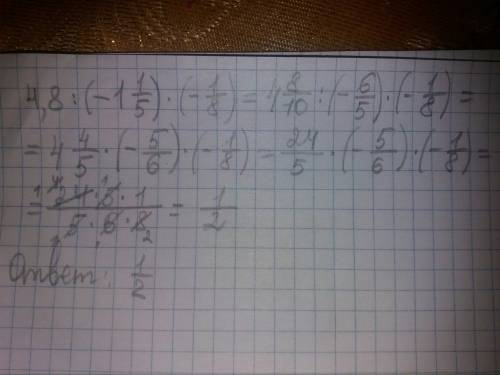 4,8 : (-1 1/5) · (-1/8) = 4 8/10 : (-6/5) · (-1/8) =
= 4 4/5 · (-5/6) · (-1/8) = 24/5 · (-5/6) · (-1/8) =
= 24 · 5 · 1 / 5 · 6 · 8 = 1/2
Ответ: 1/2